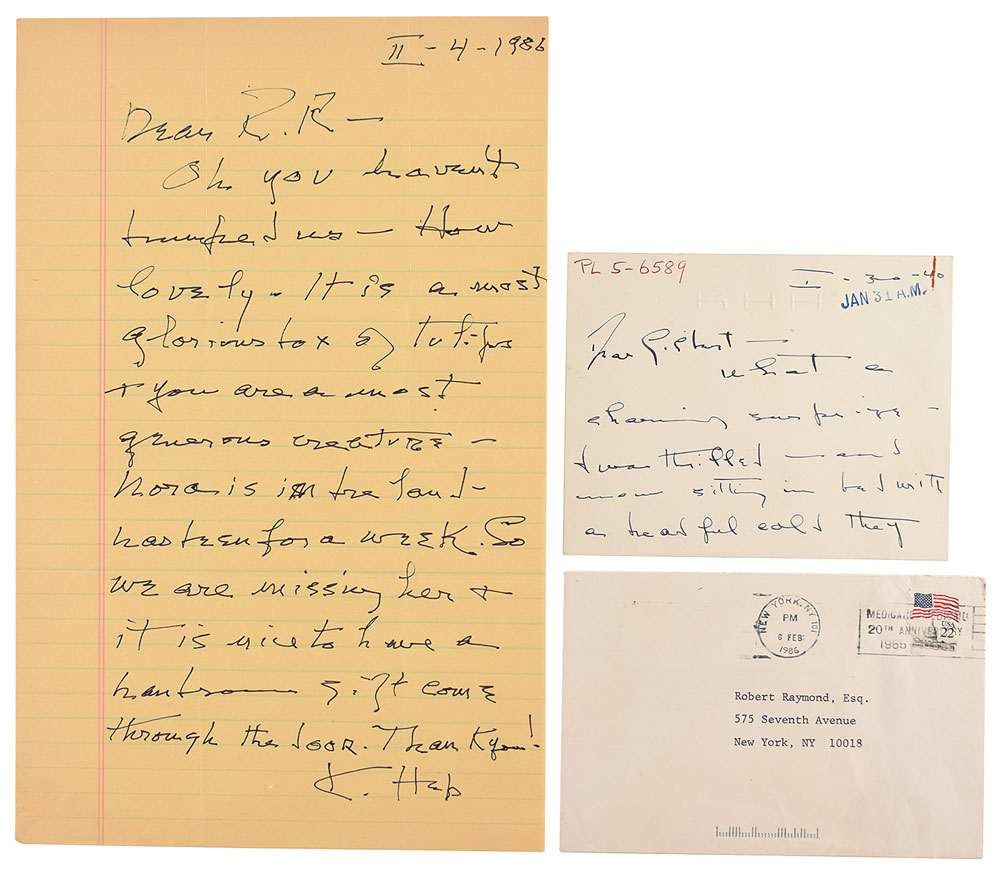 II-4-1986
Dear R.R —
Oh you haven't
trumped us — How
lovely - It is a most
glorious box of tulips
+ you are a most
generous creature —
Nora is in the land -
has been for a week. So
we are missing her +
it is nice to have a
handsome gift come
through the door. Thank you!
K. Hep
PL 5-6589
I-30-40
KHH
JAN 31 A.M.
Dear Gilbert —
What a
charming surprise -
I was thrilled — and
now sitting in bed with
a dreadful cold they
NEW YORK, NY 101
PM
6 FEB
1986
20TH ANNIVERSARY
1965
USA
22
Robert Raymond, Esq.
575 Seventh Avenue
New York, NY 10018